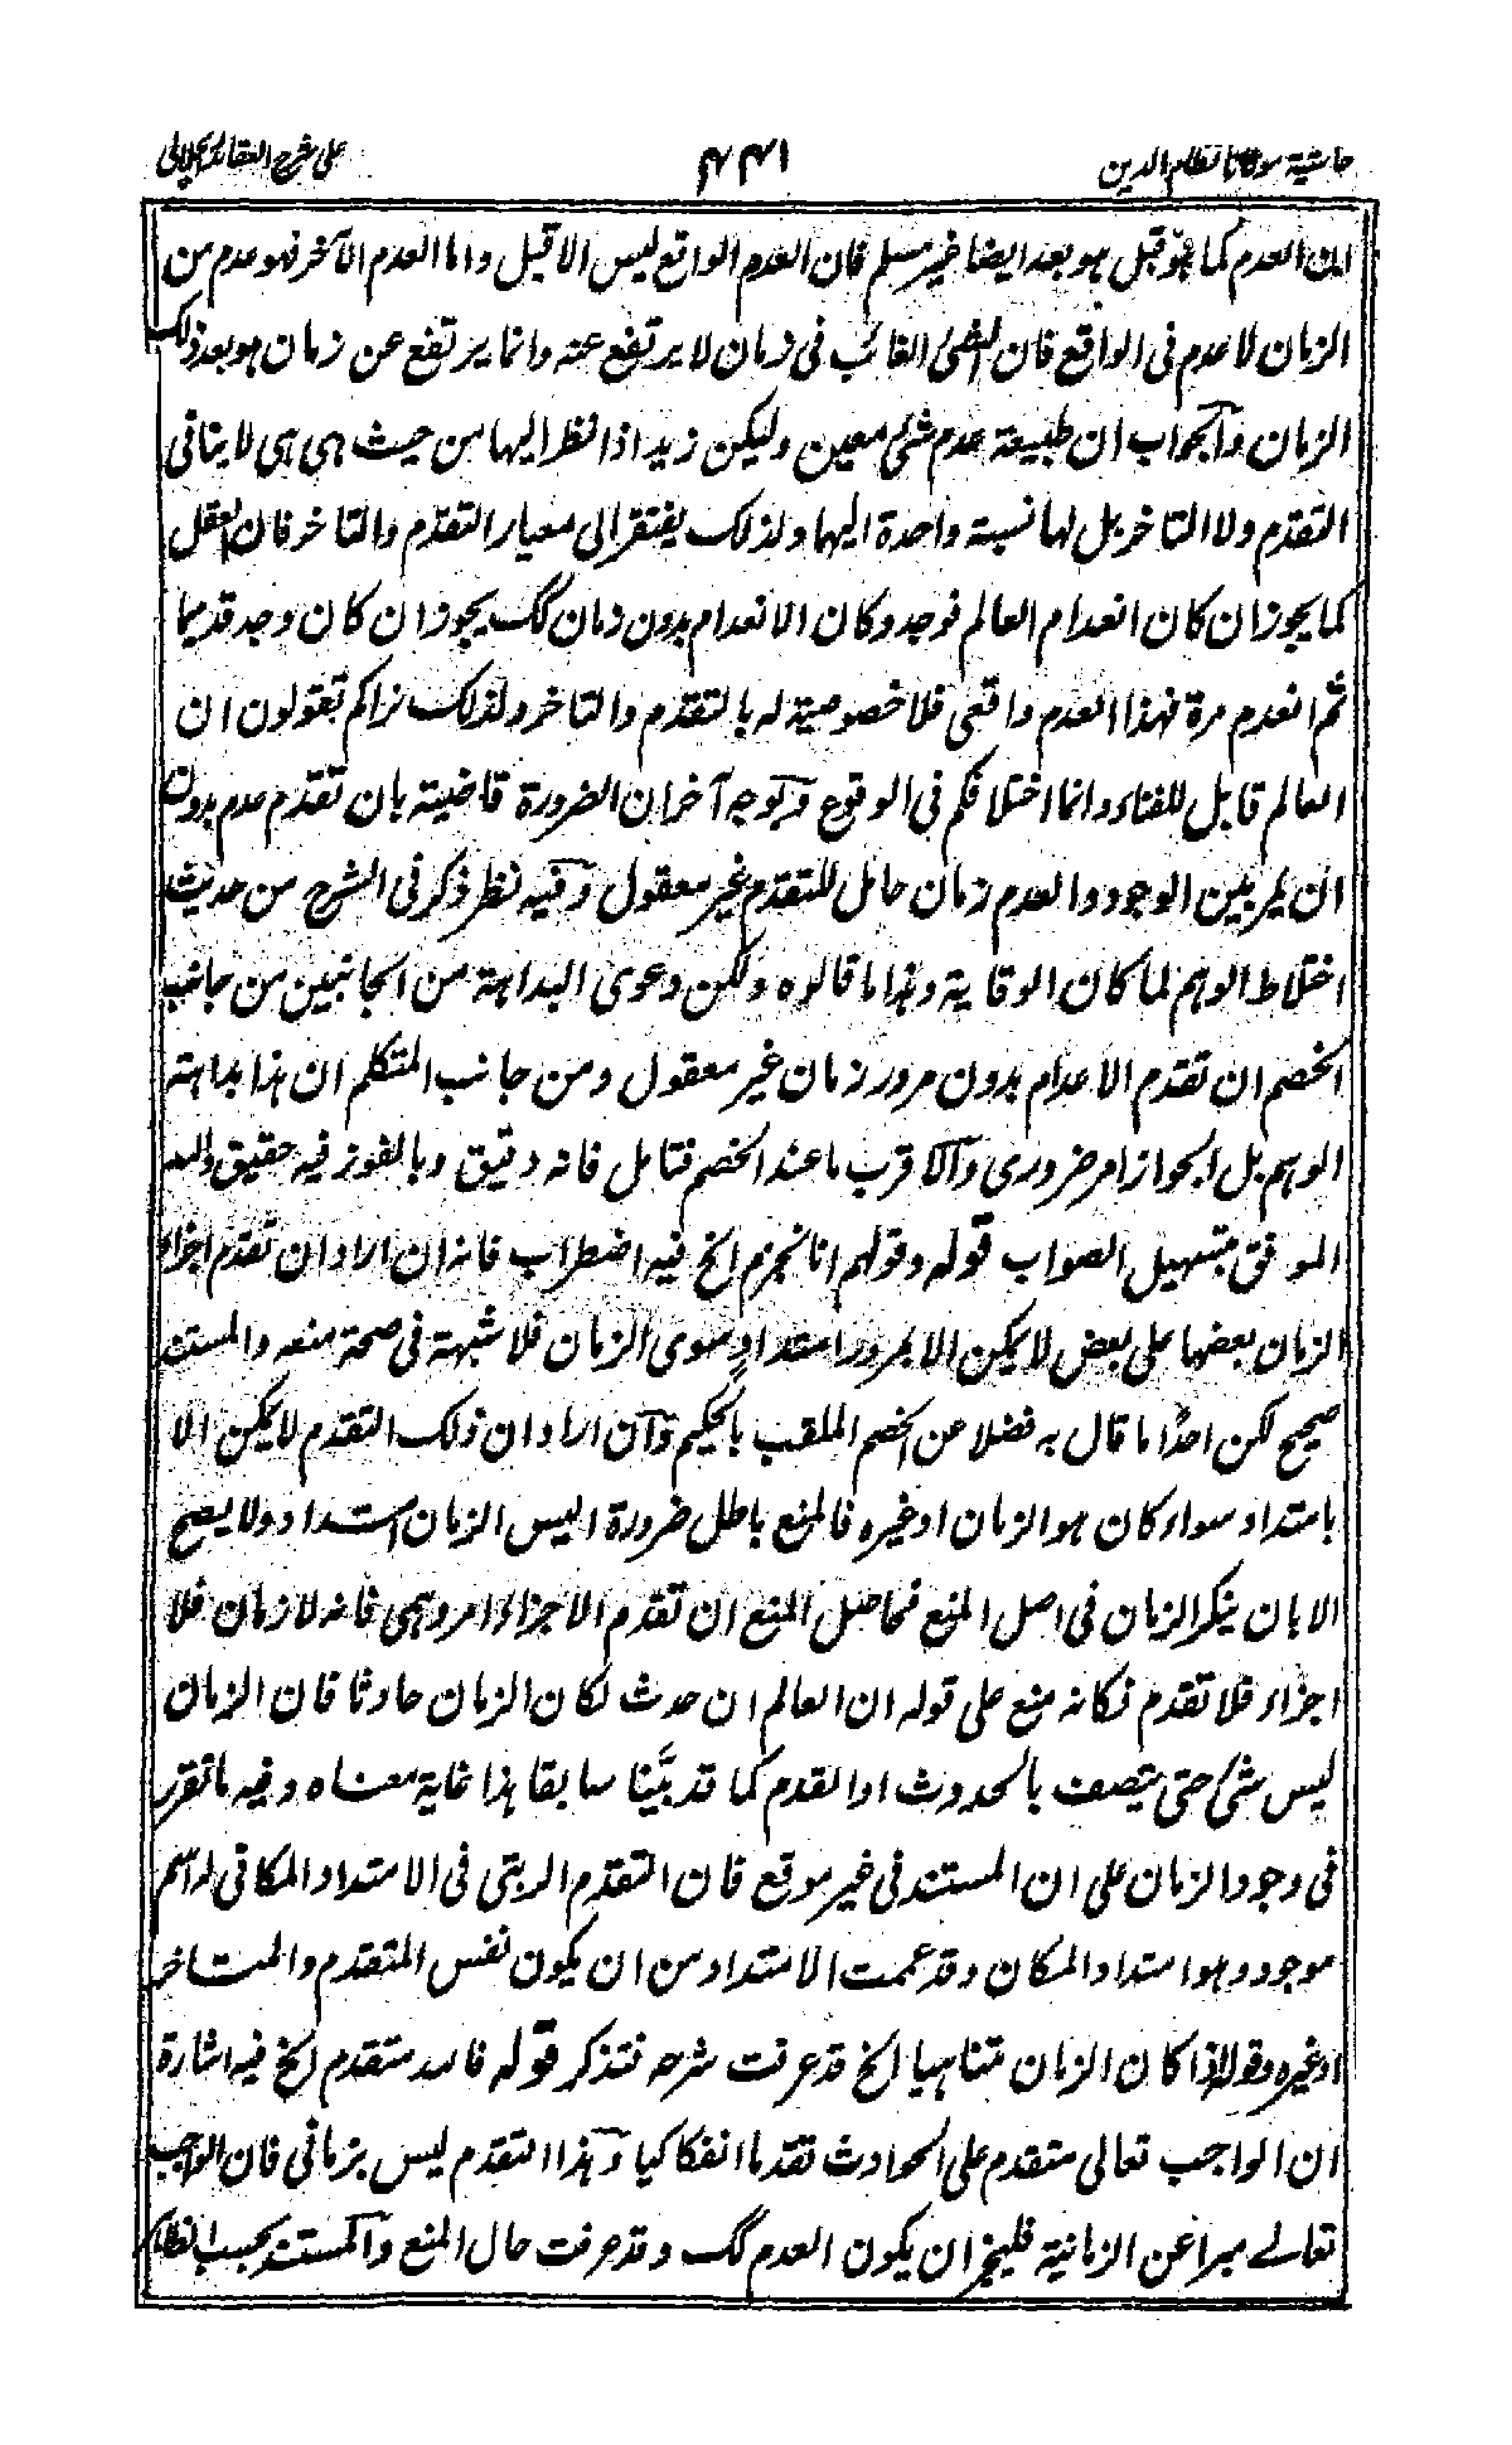 حاشية مولانا نظام الدين
على شرح العقائد الجلالى
لان العدم كما هو قبل هو بعد ايضا غير مسلم فان العدم الواقع ليس الا قبل واما العدم الآخر فهو عدم من
الزمان لا عدم فى الواقع فان الشئ الغائب فى زمان لا يرتفع عنه وانما يرتفع عن زمان هو بعد ذلك
الزمان والجواب ان طبيعة عدم شئ معين وليكن زيد اذا نظر اليها من حيث هى هى لا ينافى
التقدم ولا التاخر بل لها نسبة واحدة اليهما ولذلك يفتقر الى معيار التقدم والتاخر فان العقل
كما يجوز ان كان انعدام العالم فوجد وكان الانعدام بدون زمان كك يجوز ان كان وجد قديما
ثم انعدم مرة فهذا العدم واقعى فلا خصوصية له بالتقدم والتاخر ولذلك نراكم تقولون ان
العالم قابل للفناء وانما اختلافكم فى الوقوع وبوجه آخر ان الضرورة قاضية بان تقدم عدم بدون
ان يمر بين الوجود والعدم زمان حامل للتقدم غير معقول وفيه نظر ذكر فى الشرح من حديث
اختلاط الوهم لما كان الوقاية وهذا ما قالوه ولكن دعوى البداهة من الجانبين من جانب
الخصم ان تقدم الاعدام بدون مرور زمان غير معقول ومن جانب المتكلم ان هذا بداهة
الوهم بل الجواز امر ضرورى والاقرب ما عند الخصم فتامل فانه دقيق وبالفوز فيه حقيق والله
الموفق بتسهيل الصواب قوله وقولهم انا نجزم الخ فيه اضطراب فانه ان اراد ان تقدم اجزاء
الزمان بعضها على بعض لا يمكن الا بمرور امتدادٍ سوى الزمان فلا شبهة فى صحة منعه والمستند
صحيح لكن احدًا ما قال به فضلا عن الخصم الملقب بالحكيم وان اراد ان ذلك التقدم لا يمكن الا
بامتداد سواء كان هو الزمان او غيره فالمنع باطل ضرورة اليس الزمان امتداد ولا يصح
الا بان ينكر الزمان فى اصل المنع فحاصل المنع ان تقدم الاجزاء امر وهمى فانه لا زمان فلا
اجزاء فلا تقدم فكانه منع على قوله ان العالم ان حدث لكان الزمان حادثا فان الزمان
ليس شئ حتى يتصف بالحدوث او القدم كما قد بيَّنا سابقا هذا غاية معناه وفيه ما تقرر
فى وجود الزمان على ان المستند فى غير موقع فان التقدم الرتبى فى الامتداد المكانى له اسم
موجود وهو امتداد المكان وقد عممت الامتداد من ان يكون نفس المتقدم والمتاخر
او غيره وقوله اذا كان الزمان متناهيا الخ قد عرفت شرحه فتذكر قوله فالله متقدم الخ فيه اشارة
ان الواجب تعالى متقدم على الحوادث تقدما انفكاكيا وهذا التقدم ليس بزمانى فان الواجب
تعالے مبرا عن الزمانية فليجز ان يكون العدم كك وقد عرفت حال المنع والمستند بحسب الظاهر